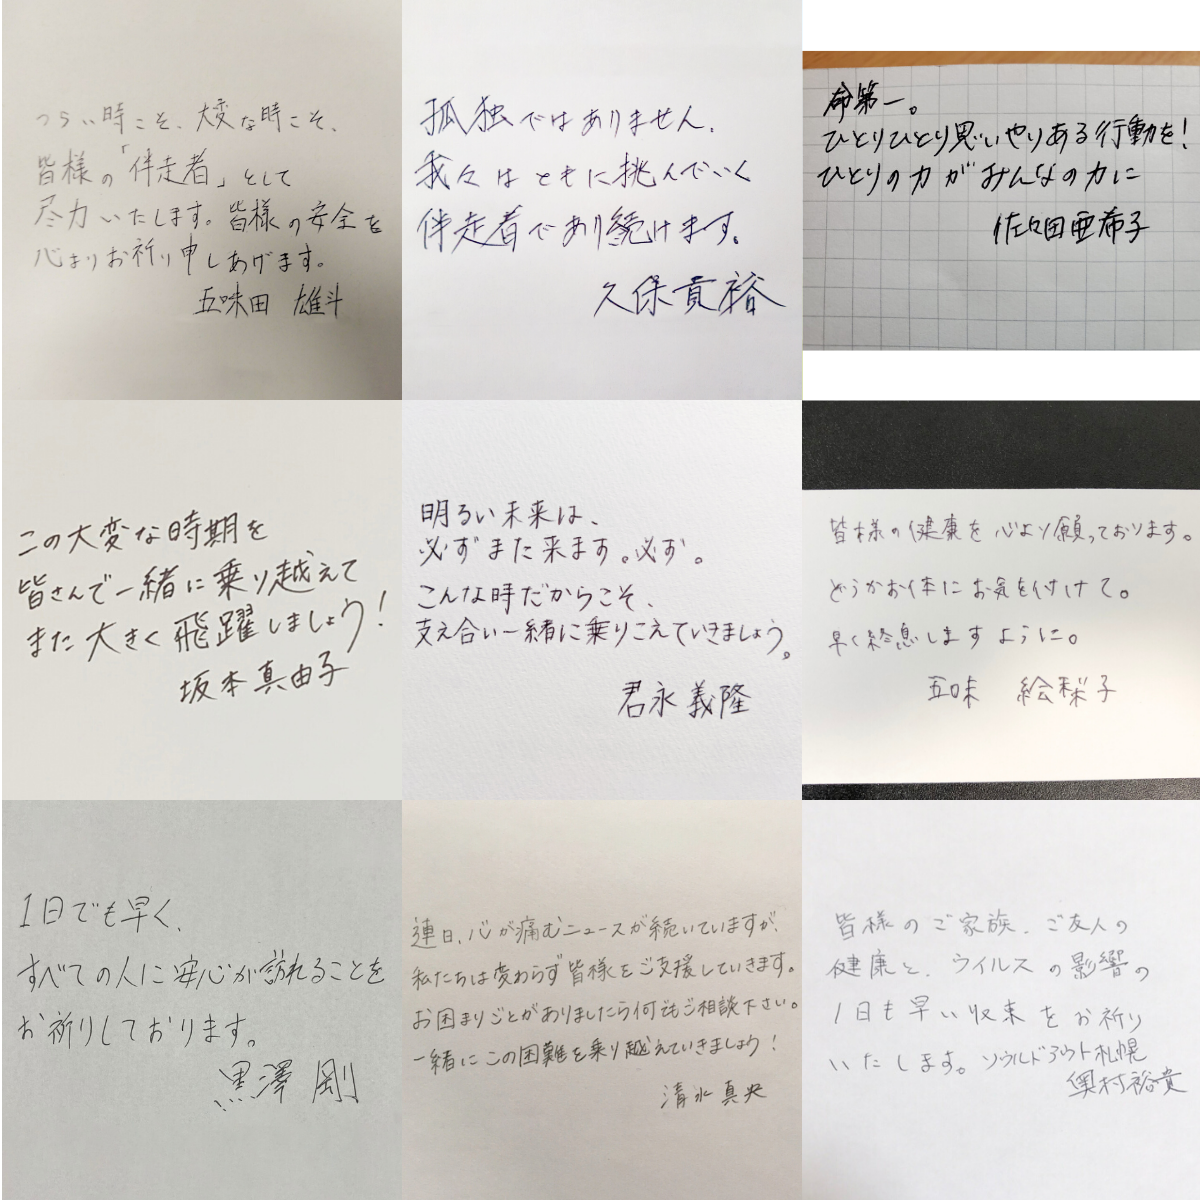 つらい時こそ、大変な時こそ、
皆様の「伴走者」として
尽力いたします。皆様の安全を
心よりお祈り申しあげます。
五味田 雄斗
孤独ではありません。
我々はともに挑んでいく
伴走者であり続けます。
久保貴裕
命第一。
ひとりひとり思いやりある行動を!
ひとりの力がみんなの力に
佐々田亜希子
この大変な時期を
皆さんで一緒に乗り越えて
また大きく飛躍しましょう!
坂本真由子
明るい未来は、
必ずまた来ます。必ず。
こんな時だからこそ、
支え合い一緒に乗りこえていきましょう。
君永義隆
皆様の健康を心より願っております。
どうかお体にお気を付けて。
早く終息しますように。
五味 絵梨子
1日でも早く、
すべての人に安心が訪れることを
お祈りしております。
黒澤 剛
連日、心が痛むニュースが続いていますが、
私たちは変わらず皆様をご支援していきます。
お困まりごとがありましたら何でもご相談下さい。
一緒にこの困難を乗り越えていきましょう!
清水真央
皆様のご家族、ご友人の
健康と、ウイルスの影響の
1日も早い収束をお祈り
いたします。ソウルドアウト札幌
奥村裕貴